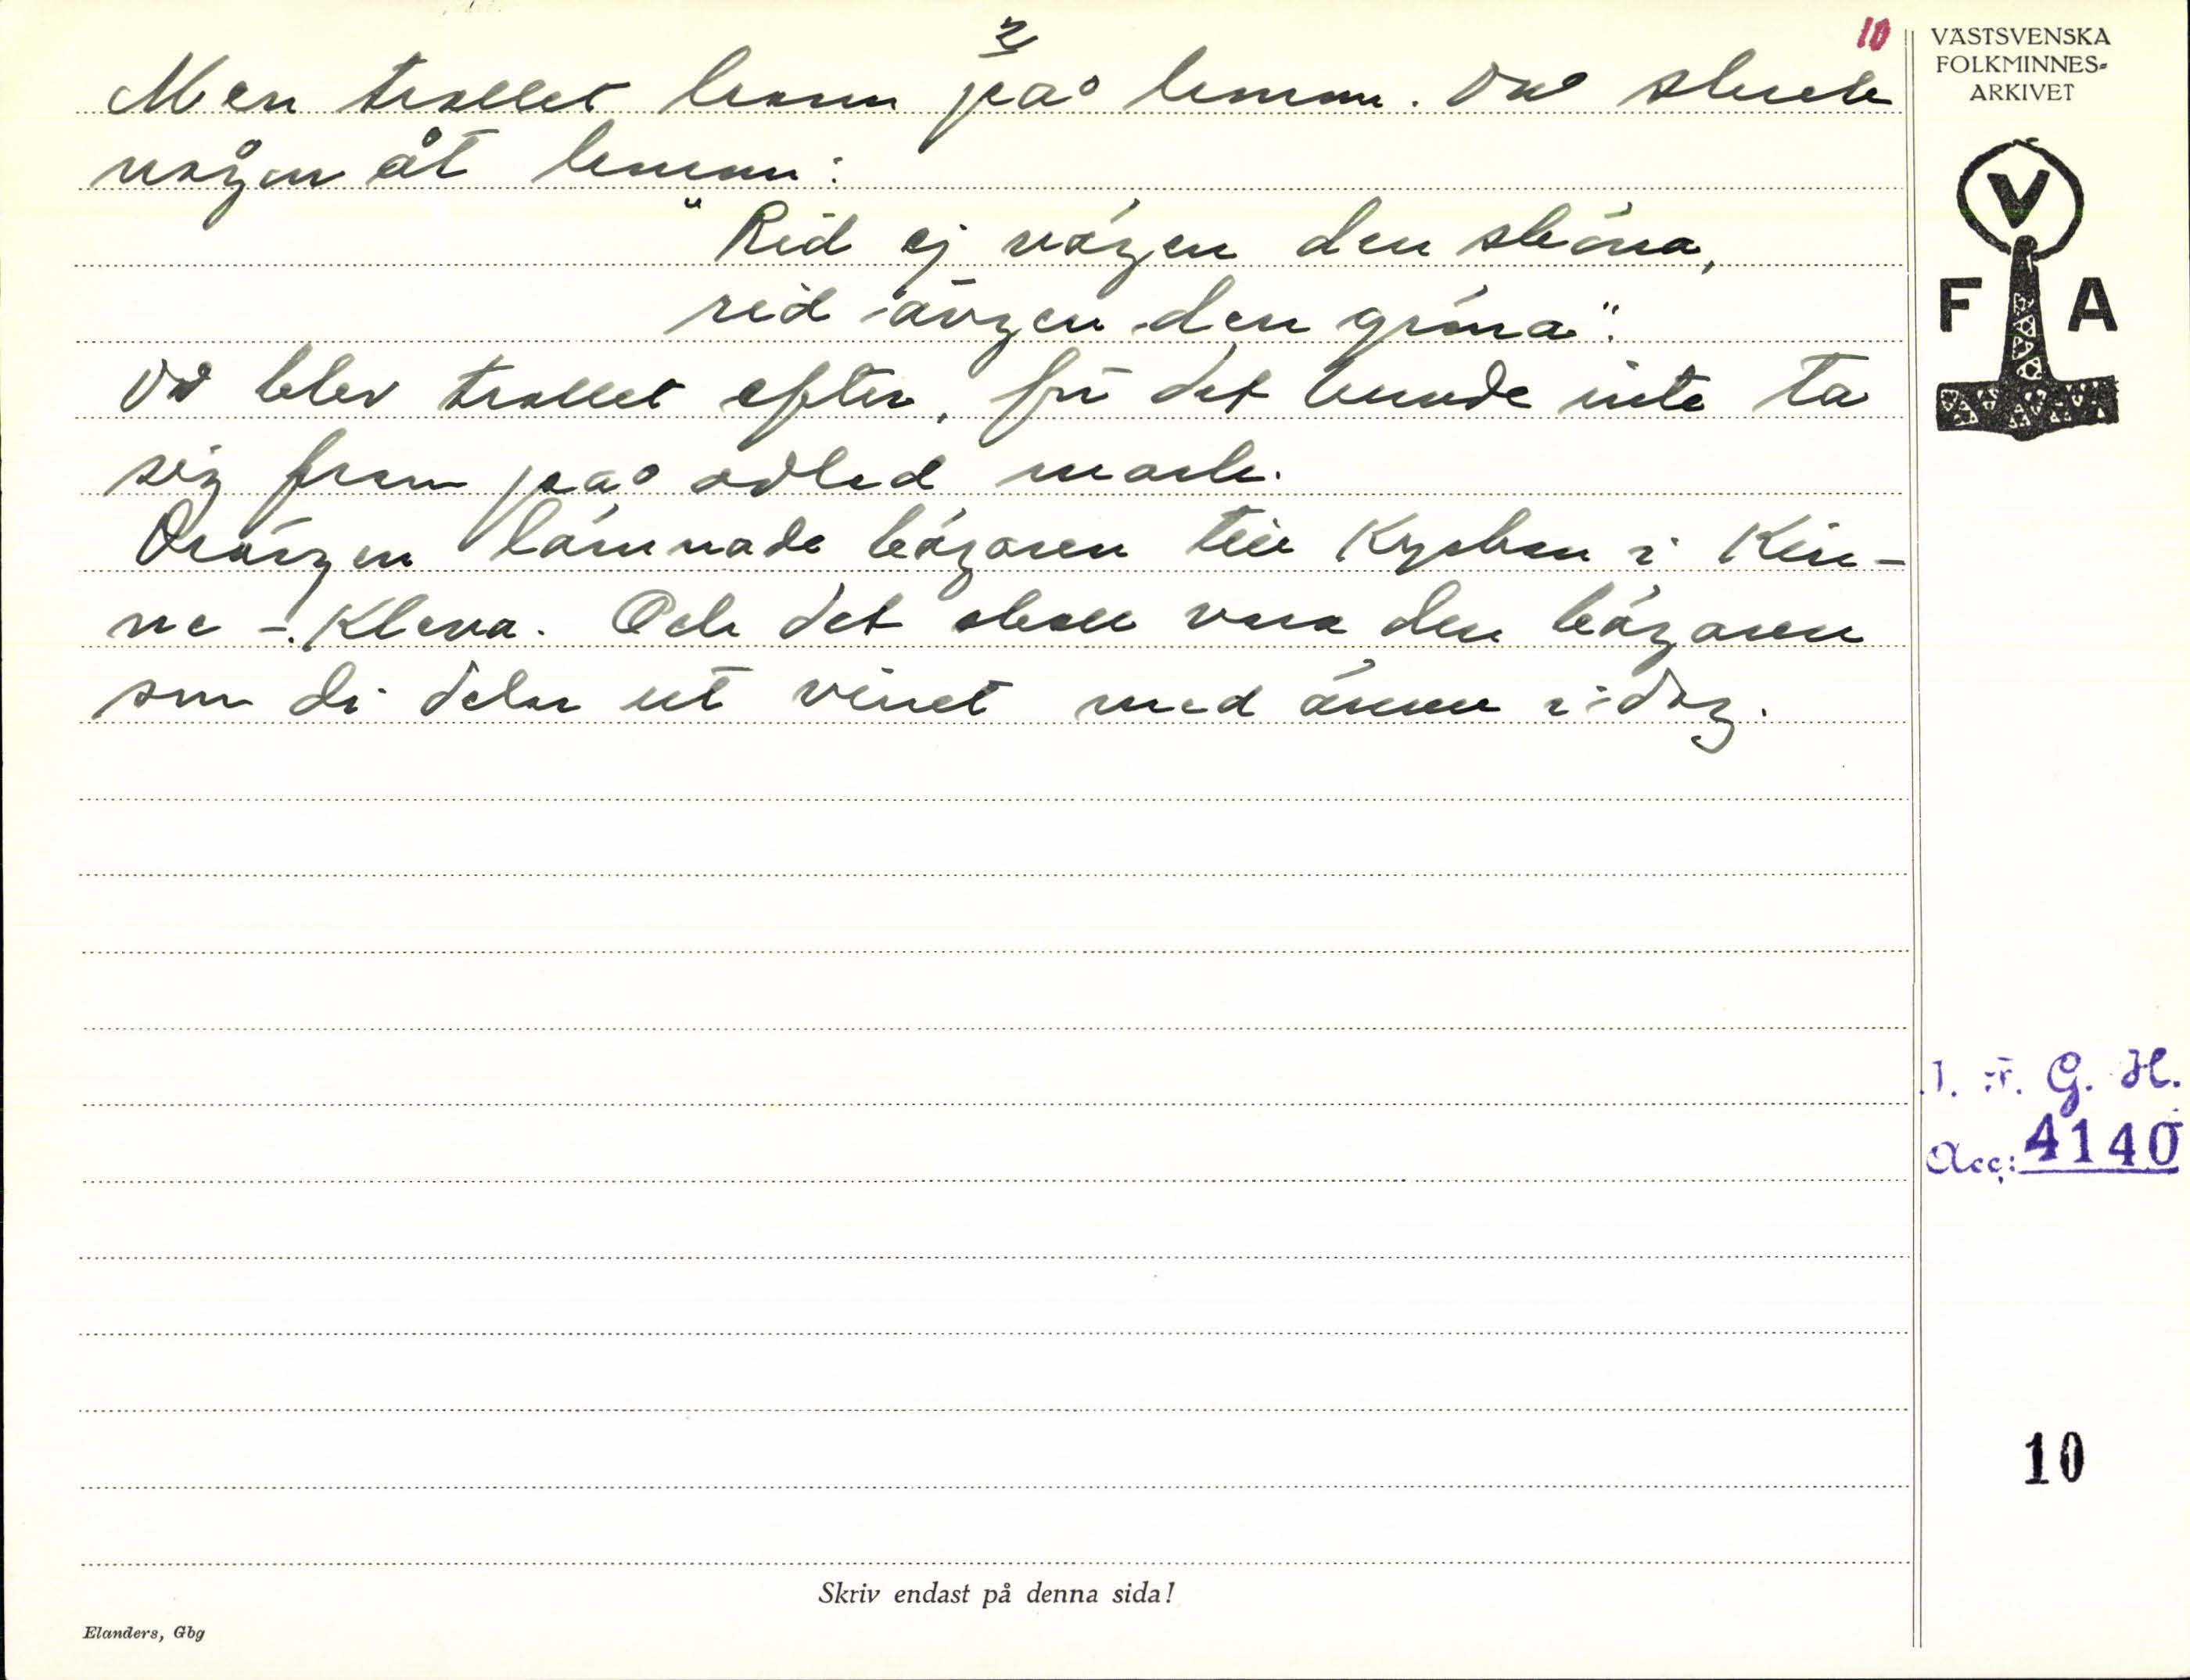 2
10
Men trollet hann på honom. Då skrek
någon åt honom:
"Rid ej vägen den sköna,
rid ävgen den gröna".
Då blev trollet efter, för det kunde inte ta
sig fram på odled mark.
Drängen lämnade bägaren till Kyrkan i Kin-
ne-Kleva. Och det skall vara den bägaren
som di delar ut vinet med ännu i dag.
VÄSTSVENSKA
FOLKMINNES-
ARKIVET
V
F A
I. F. G. H.
Acc: 4140
10
Skriv endast på denna sida!
Elanders, Gbg